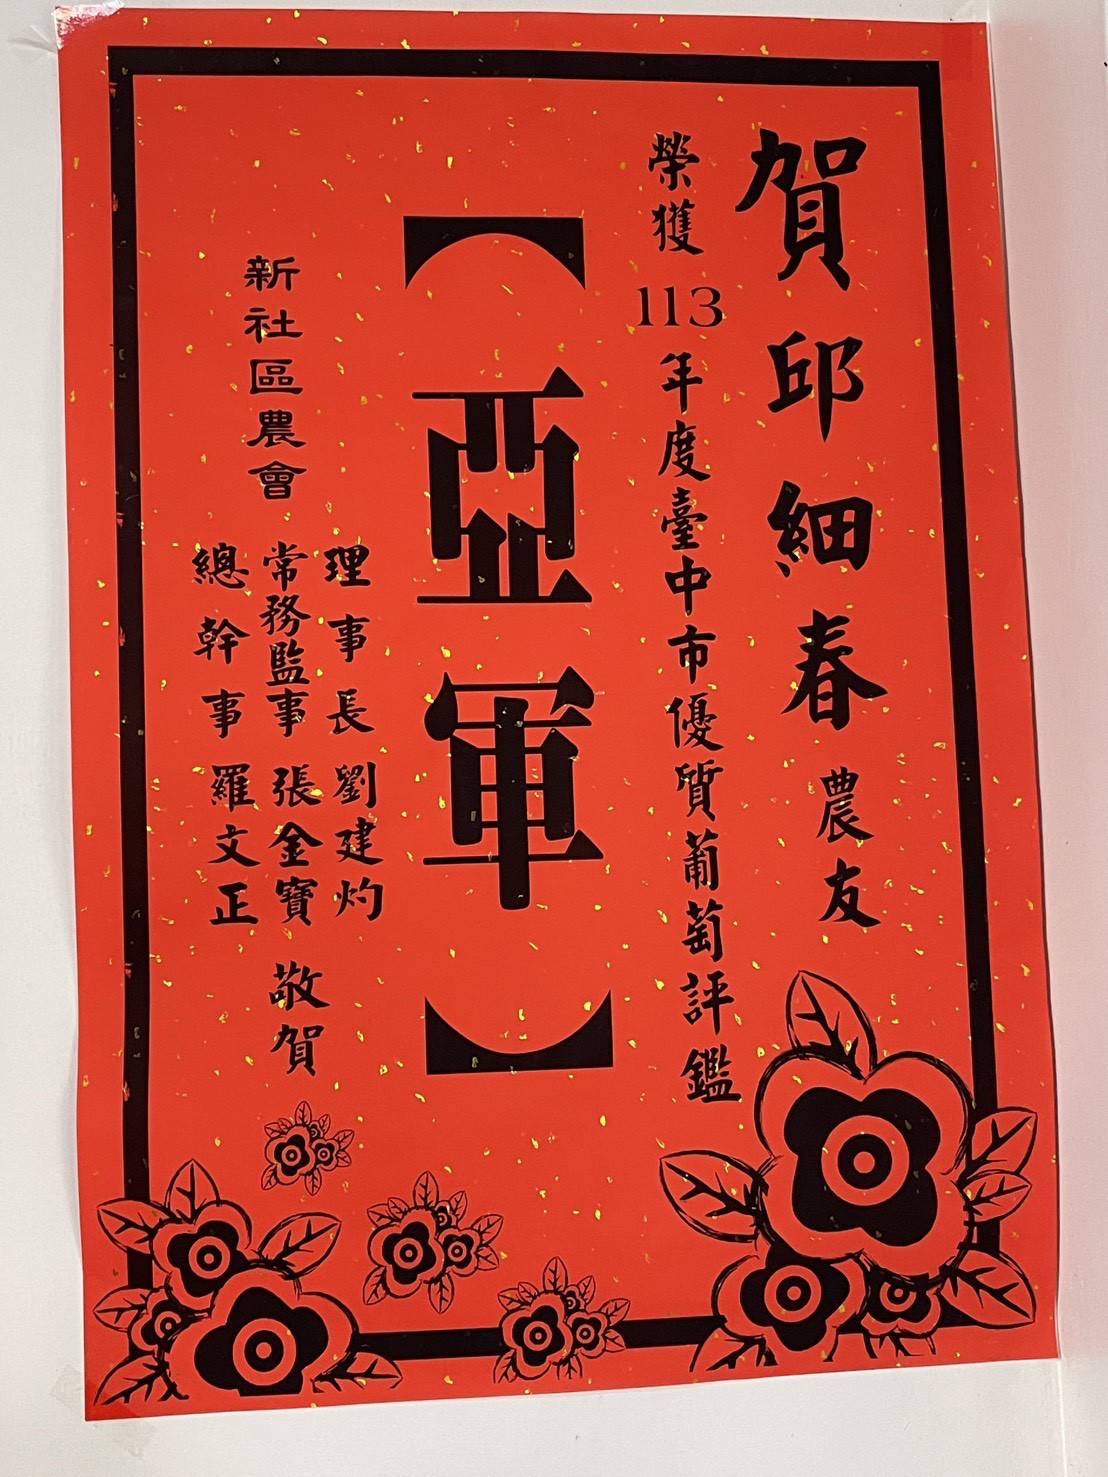 賀邱細春農友
榮獲113年度臺中市優質葡萄評鑑
亞軍
新社區農會
理事長劉建灼
常務監事張金寶
總幹事羅文正
敬賀